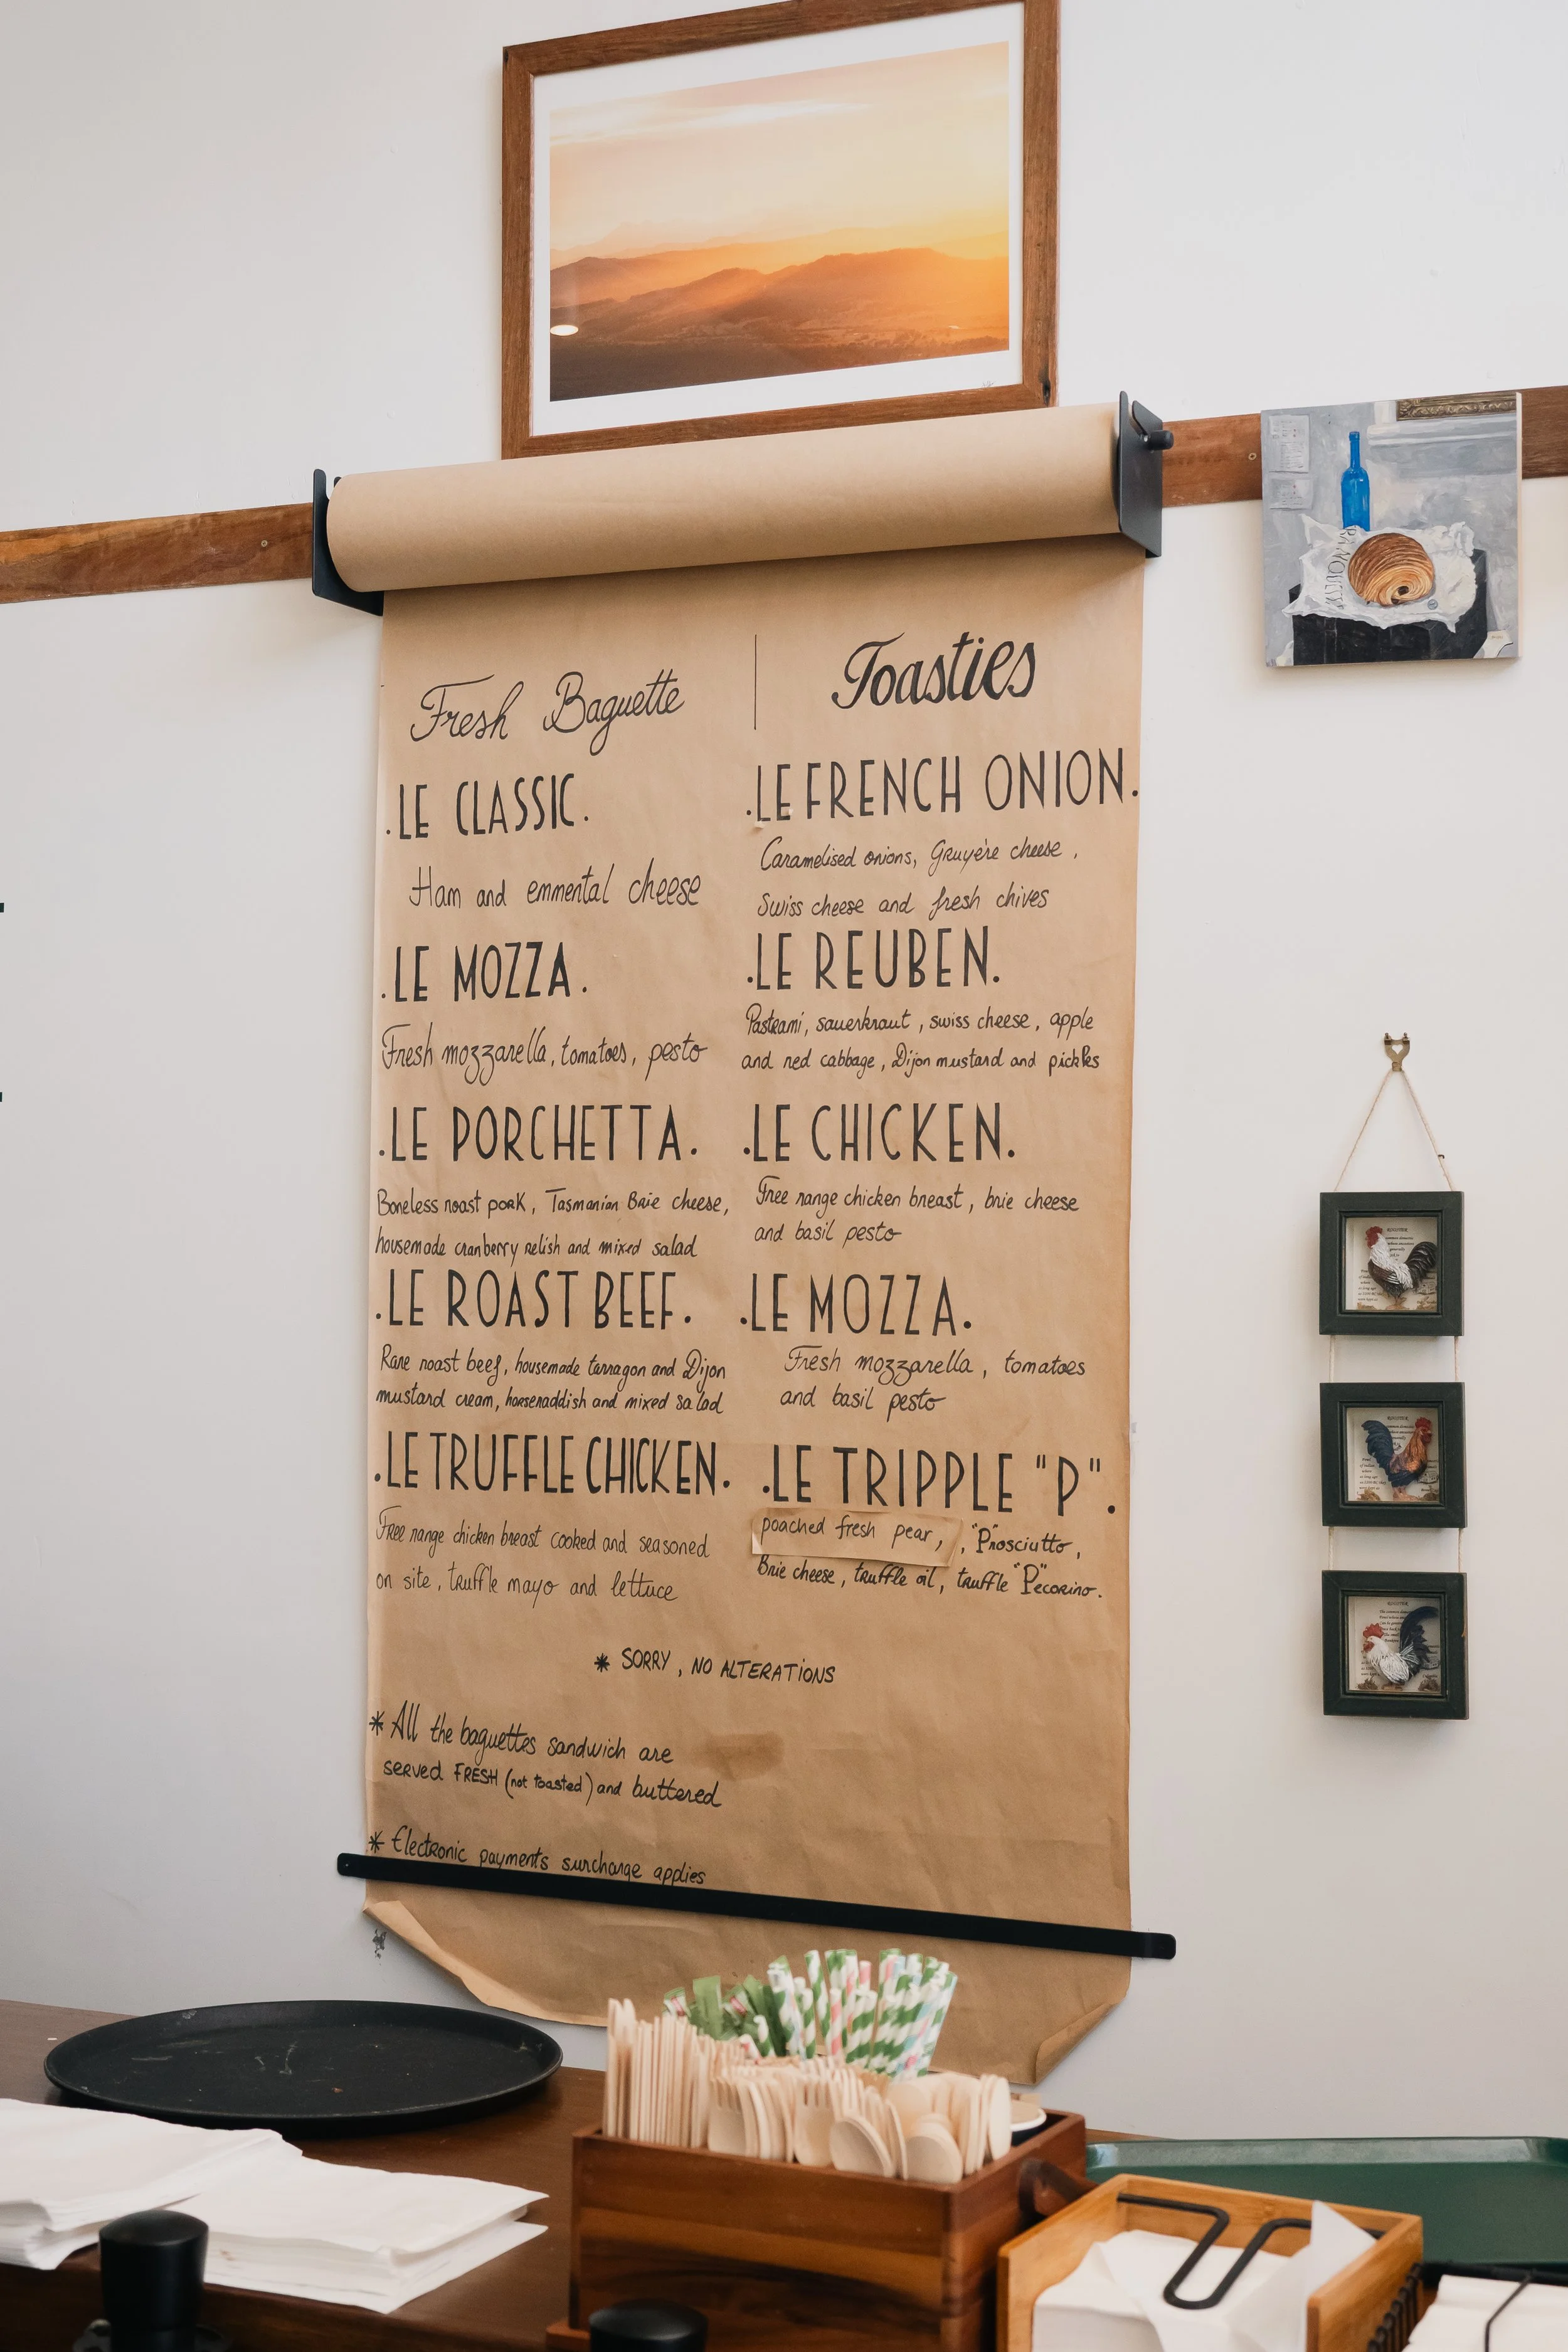 Fresh Baguette
.LE CLASSIC.
Ham and emmental cheese
.LE MOZZA.
Fresh mozzarella, tomatoes, pesto
.LE PORCHETTA.
Boneless roast pork, Tasmanian Brie cheese,
housemade cranberry relish and mixed salad
.LE ROAST BEEF.
Rare roast beef, housemade tarragon and Dijon
mustard cream, horseraddish and mixed salad
.LE TRUFFLE CHICKEN.
Free range chicken breast cooked and seasoned
on site, truffle mayo and lettuce
Toasties
.LE FRENCH ONION.
Caramelised onions, Gruyère cheese,
Swiss cheese and fresh chives
.LE REUBEN.
Pastrami, sauerkraut, swiss cheese, apple
and red cabbage, Dijon mustard and pickles
.LE CHICKEN.
Free range chicken breast, brie cheese
and basil pesto
.LE MOZZA.
Fresh mozzarella, tomatoes
and basil pesto
.LE TRIPPLE "P".
poached fresh pear, , "P"rosciutto,
Brie cheese, truffle oil, truffle "P"ecorino.
* SORRY, NO ALTERATIONS
* All the baguettes sandwich are
served FRESH (not toasted) and buttered
* Electronic payments surcharge applies
ROOSTER
ROOSTER
ROOSTER